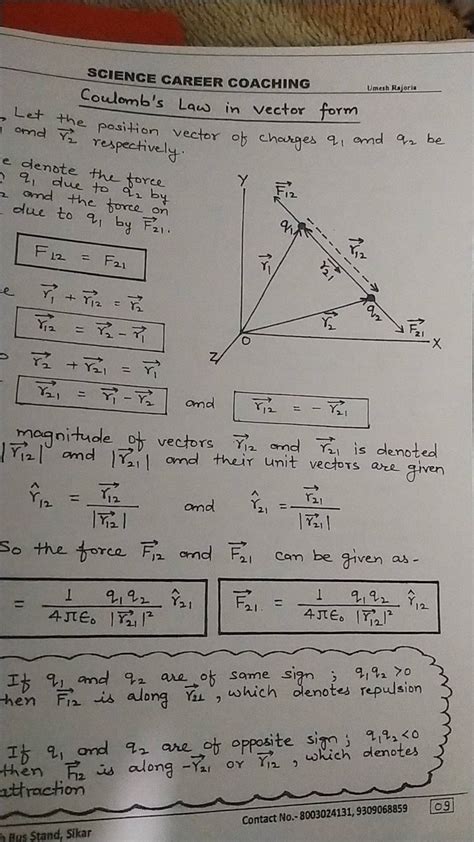 SCIENCE CAREER COACHING
Umesh Rajoria
Coulomb's Law in vector form
Let the position vector of charges q₁ and q₂ be
and r⃗₂ respectively.
denote the force
q₁ due to q₂ by
and the force on
due to q₁ by F⃗₂₁.
F₁₂ = F₂₁
r⃗₁ + r⃗₁₂ = r⃗₂
r⃗₁₂ = r⃗₂ - r⃗₁
r⃗₂ + r⃗₂₁ = r⃗₁
r⃗₂₁ = r⃗₁ - r⃗₂ and r⃗₁₂ = - r⃗₂₁
Y
F⃗₁₂
q₁
r⃗₁₂
r⃗₂₁
r⃗₁
q₂
r⃗₂
F⃗₂₁
O
X
Z
magnitude of vectors r⃗₁₂ and r⃗₂₁ is denoted
|r⃗₁₂| and |r⃗₂₁| and their unit vectors are given
r̂₁₂ = r⃗₁₂ / |r⃗₁₂| and r̂₂₁ = r⃗₂₁ / |r⃗₂₁|
So the force F⃗₁₂ and F⃗₂₁ can be given as-
= 1/4πε₀ q₁q₂/|r⃗₂₁|² r̂₂₁ F⃗₂₁ = 1/4πε₀ q₁q₂/|r⃗₁₂|² r̂₁₂
If q₁ and q₂ are of same sign ; q₁q₂ >0
then F⃗₁₂ is along r⃗₂₁ , which denotes repulsion
If q₁ and q₂ are of opposite sign ; q₁q₂<0
then F⃗₁₂ is along -r⃗₂₁ or r⃗₁₂ , which denotes
attraction
Bus Stand, Sikar
Contact No.- 8003024131, 9309068859
09